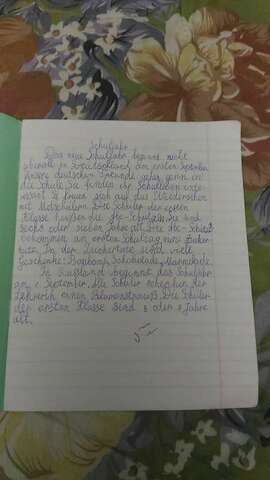 Schuljahr
Das neue Schuljahr beginnt nicht
überall in Deutschland am ersten September.
Unsere deutschen Freunde gehen gern in
die Schule. Sie finden ihr Schulleben inte-
ressant. Sie freuen sich auf das Wiedersehen
mit Mitschülern. Die Schüler der ersten
Klasse heißen die Abc-Schützen. Sie sind
sechs oder sieben Jahre alt. Die Abc-Schützen
bekommen am ersten Schultag eine Zucker-
tüte. In der Zuckertüte sind viele
Geschenke: Bonbons, Schokolade, Marmelade.
In Russland beginnt das Schuljahr
am 1. September. Die Schüler schenken der
Lehrerin einen Blumenstrauß. Die Schüler
der ersten Klasse sind 6 oder 7 Jahre
alt.